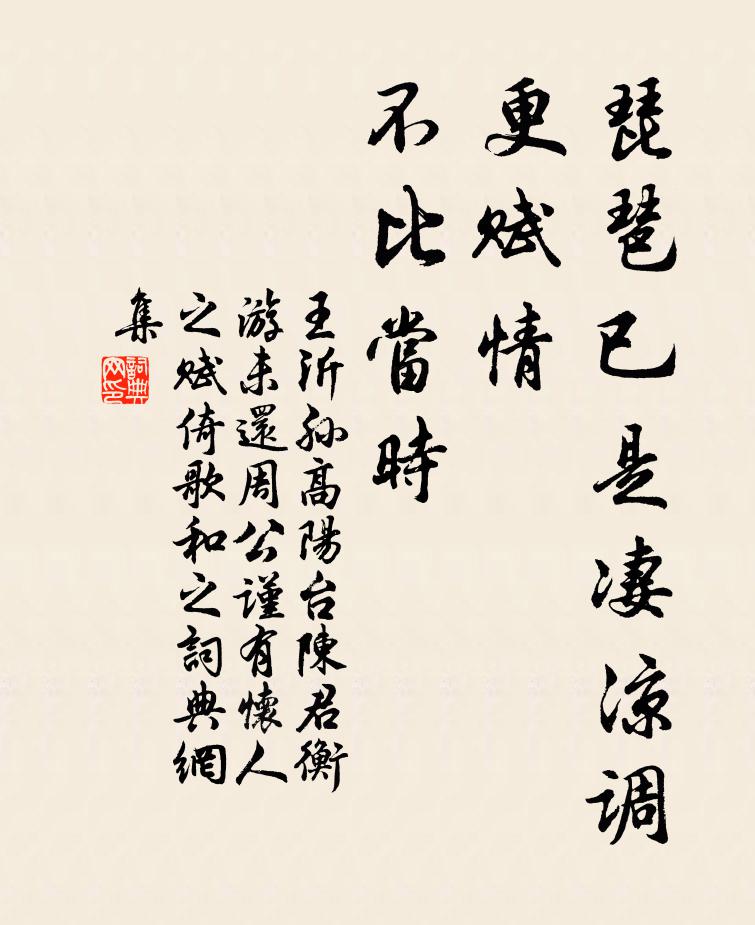 琵琶已是凄涼調
更賦情
不比當時
王沂孙高陽台陳君衡
游未還周公謹有懷人
之賦倚歌和之詞典網
集
詞典
网印